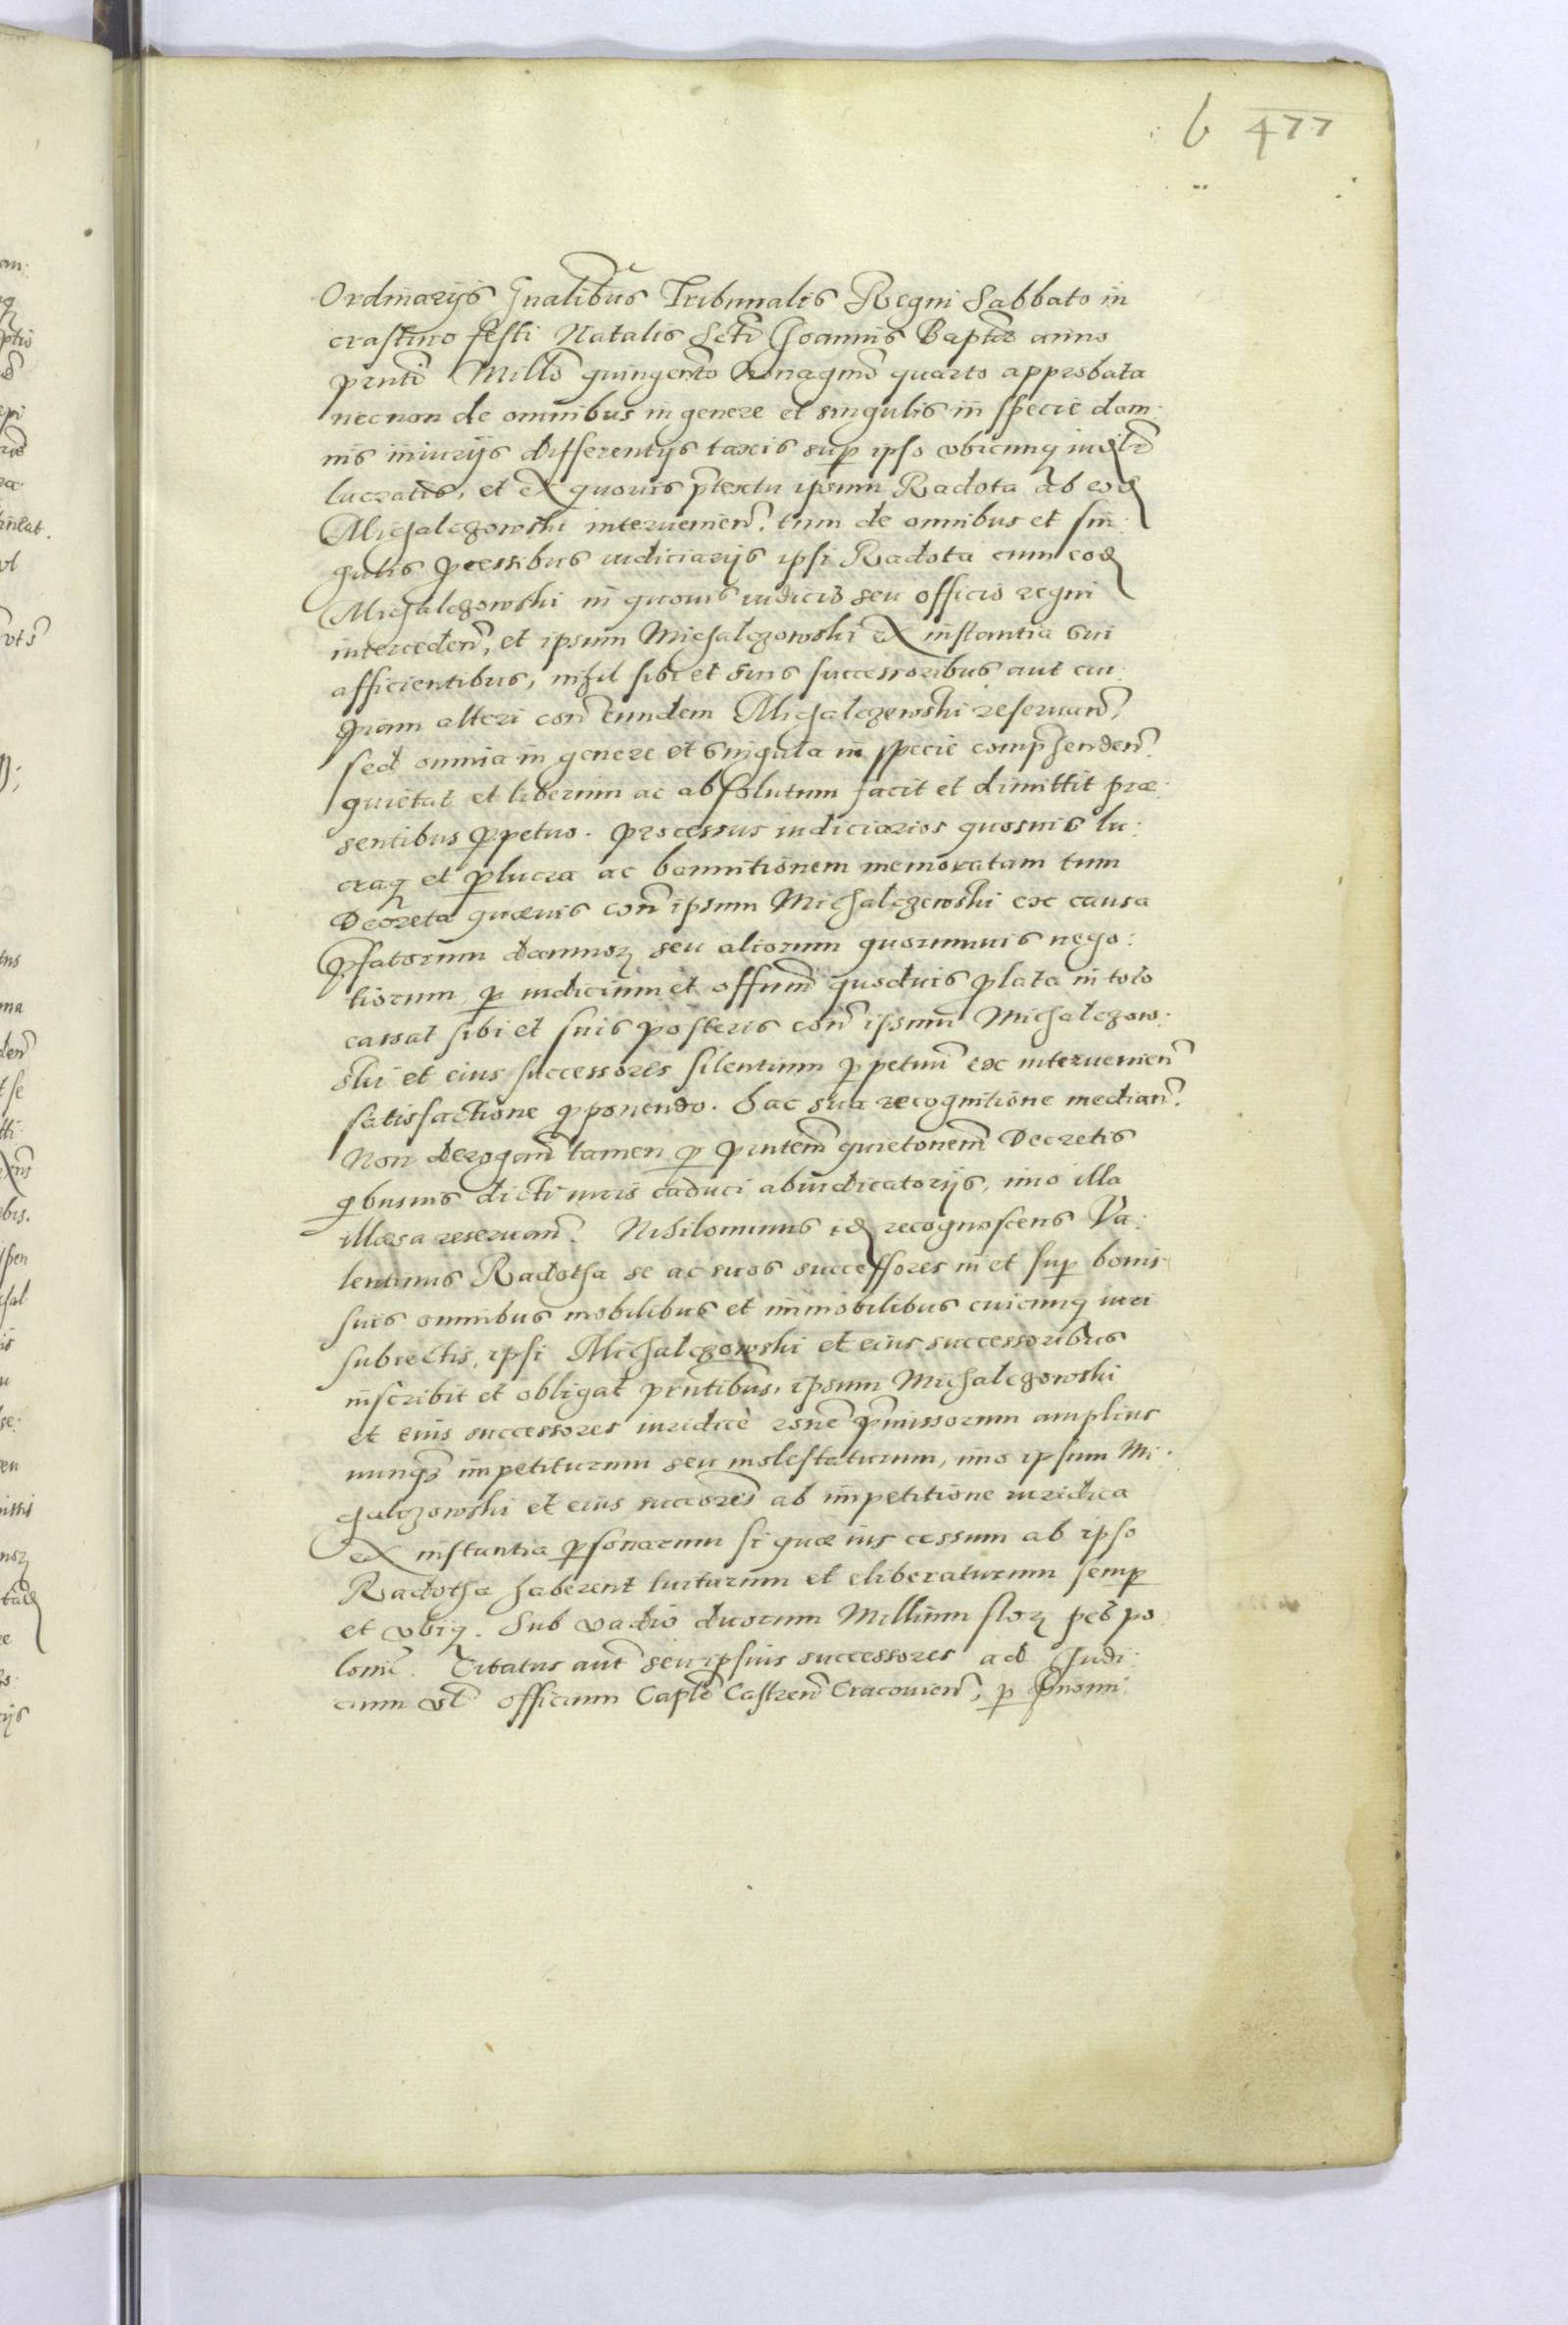 6 477
Ordinarijs Gnalibus Tribunalis Regni Sabbato in
crastino festi Natalis Scti Joannis Baptæ anno
prnti Millo quingento Nonagmo quarto approbata
necnon de omnibus in genere et singulis in specie dam:
nis iniurijs differentijs taxis sup ipso vbicunq iudltr
lucratis, et ex quouis ptextu ipsum Radota ab eod
Michalczowski interuenien. tum de omnibus et sin:
gulis pcessibus iudiciarijs ipsi Radota cum eod
Michalczowski in quouis iudicio seu officio regni
interceden, et ipsum Michalczowski ex instantia sui
afficientibus, nihil sibi et suis successoribus aut cui:
quam alteri con eundem Michalczewski reseruan,
sed omnia in genere et singula in specie comphenden.
quietat et liberum ac absolutum facit et dimittit præ:
sentibus ppetuo. Processus iudiciarios quosuis lu:
craq et plucra ac bannitionem memoratam tum
Decreta quæuis con ipsum Michalczewski ex causa
pfatorum damnor seu aliorum quorumuis nego:
tiorum p iudicium et offum quoduis plata in toto
cassat sibi et suis posteris con ipsum Michalczow:
ski et eius successores silentium ppetuu ex interuenien
satisfactione pponendo. Hac sua recognitione median.
Non derogan tamen p prntem quietonem Decretis
qbusuis dicti iuris caduci abiudicatorijs, imo illa
illæsa reseruan. Nihilominus id recognoscens Va:
lentinus Radotha se ac suos successores in et sup bonis
suis omnibus mobilibus et immobilibus cuicunq iuri
subiectis, ipsi Michalczowski et eius successoribus
inscribit et obligat prntibus, ipsum Michalczowski
et eius successores iuridicè rone pmissorum amplius
nunq impetiturum seu molestaturum, imo ipsum Mi:
chalczowski et eius succores ab impetitione iuridica
ex instantia psonarum si quæ ius cessum ab ipso
Radotha haberent tuiturum et eliberaturum semp
et vbiq. Sub vadio duorum Millium flor pec po
lonic. Citatus aut seu ipsius successores ad Judi:
cium vel officium Caple Castren Cracouien, p pnomi: